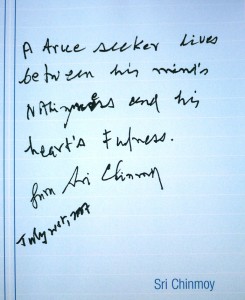 A true seeker lives
between his mind's
Nothingness and his
heart's Fulness.
from Sri Chinmoy
July 21st, 2007
Sri Chinmoy